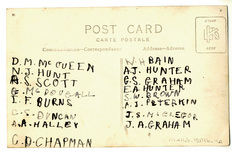 POST CARD
CARTE POSTALE
Communication—Correspondance
Address—Adresse
D. M. McQUEEN
N. J. HUNT
A. S. SCOTT
G. McDOUGALL
E. F. BURNS
G. S. DUNCAN
A. A. HALLEY
C. D. CHAPMAN
W. H BAIN
A. J. HUNTER
G. S. GRAHAM
E. A. HUNTER
S. W. BROWN
A. J. PETERKIN
J. S. McGREGOR
J. A. GRAHAM